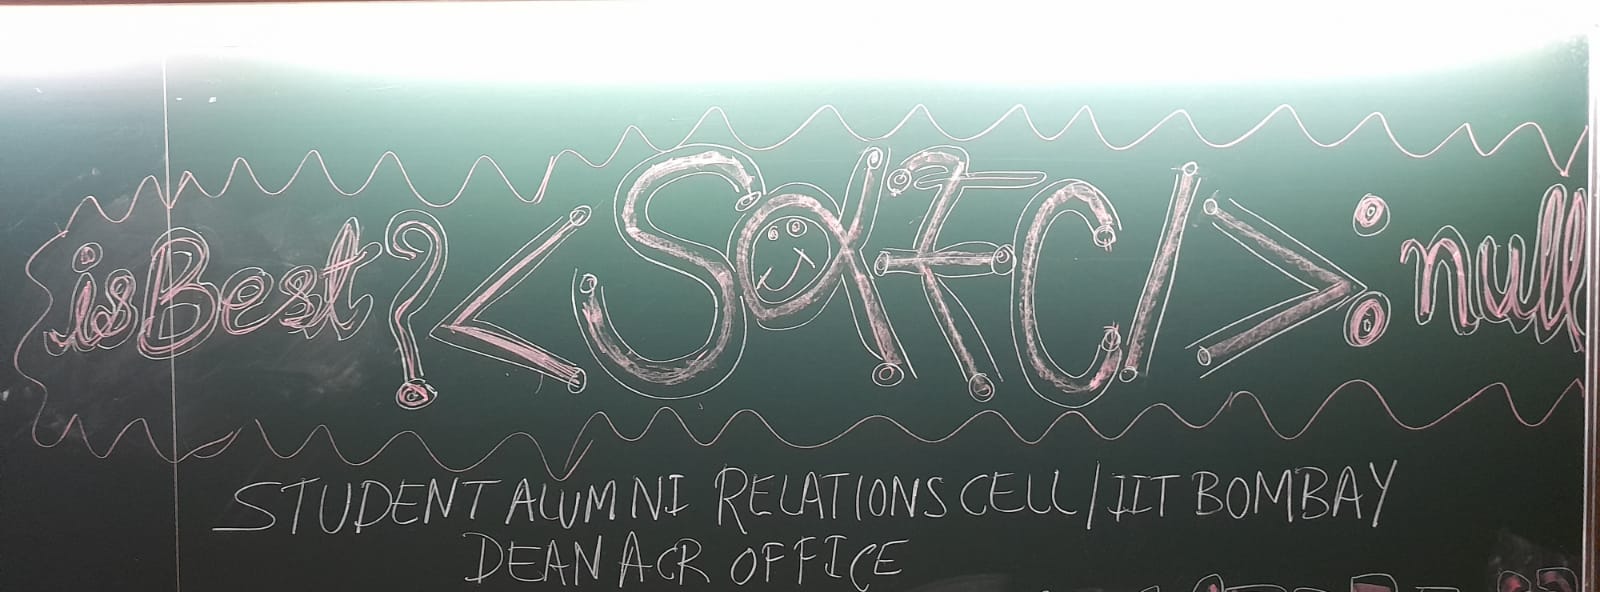 isBest?<SARC/>:null
STUDENT ALUMNI RELATIONS CELL/IIT BOMBAY
DEAN ACR OFFICE